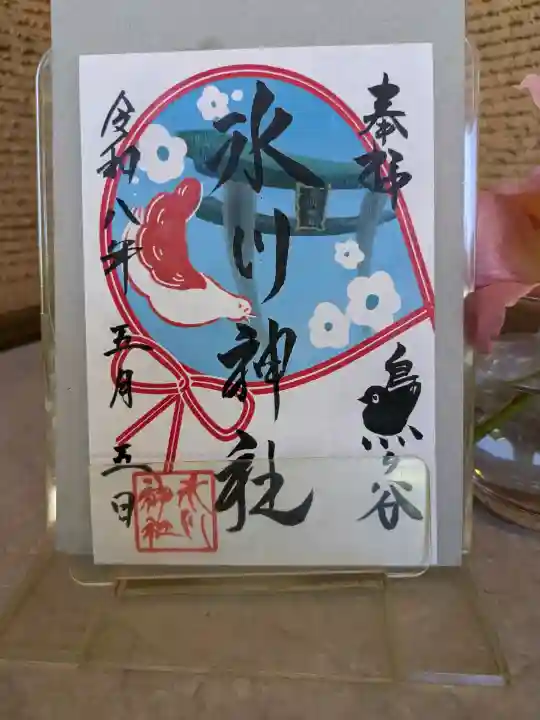 奉拝
ヶ谷
氷川神社
令和八年 五月五日
氷川
神社